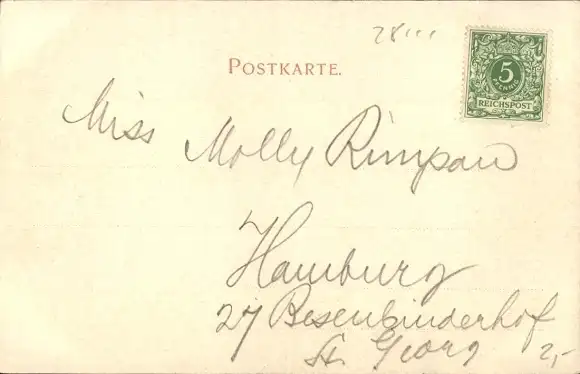 28
POSTKARTE.
5
PFENNIG
REICHSPOST
Miss Molly Rimpau
Hamburg
27 Besenbinderhof
St. Georg
2,-